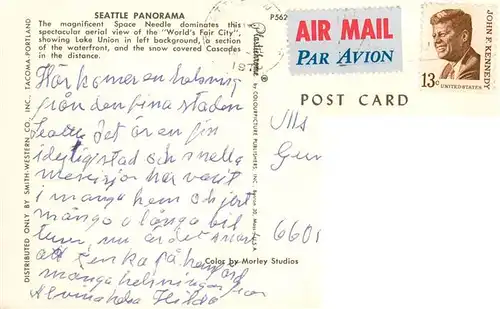 SEATTLE PANORAMA
The magnificent Space Needle dominates this
spectacular aerial view of the "World's Fair City",
showing Lake Union in left background, a section
of the waterfront, and the snow covered Cascades
in the distance.
P562
197
AIR MAIL
PAR AVION
JOHN F. KENNEDY
13c
UNITED STATES
POST CARD
DISTRIBUTED ONLY BY SMITH-WESTERN CO., INC., TACOMA-PORTLAND
Plastichrome ® by COLOURPICTURE PUBLISHERS, INC. Boston 30, Mass., U.S.A.
Här kommer en helsning
från den fina staden
Seattle det är en fin
idyllig stad och snella
menisjor har varit
i manga hem och jort
mångo o långa bil
turn, nu er det snart
att tenka på hemfärd
manga helsningar från
Hilda
Color by Morley Studios
Ms
Gun
6601